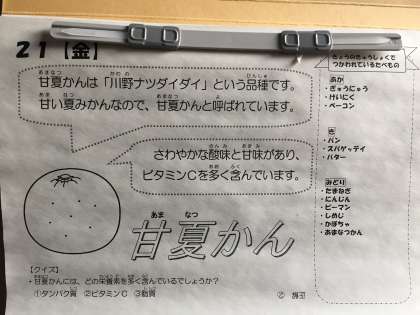 21【金】
甘夏かんは「川野ナツダイダイ」という品種です。
甘い夏みかんなので、甘夏かんと呼ばれています。
さわやかな酸味と甘味があり、
ビタミンCを多く含んでいます。
甘夏かん
あま なつ
【クイズ】
・甘夏かんには、どの栄養素を多く含んでいるでしょうか?
①タンパク質 ②ビタミンC ③脂質
きょうのきゅうしょくで
つかわれているたべもの
あか
・ぎゅうにゅう
・けいにく
・ベーコン
き
・パン
・スパゲッティ
・バター
みどり
・たまねぎ
・にんじん
・ピーマン
・しめじ
・かぼちゃ
・あまなつかん